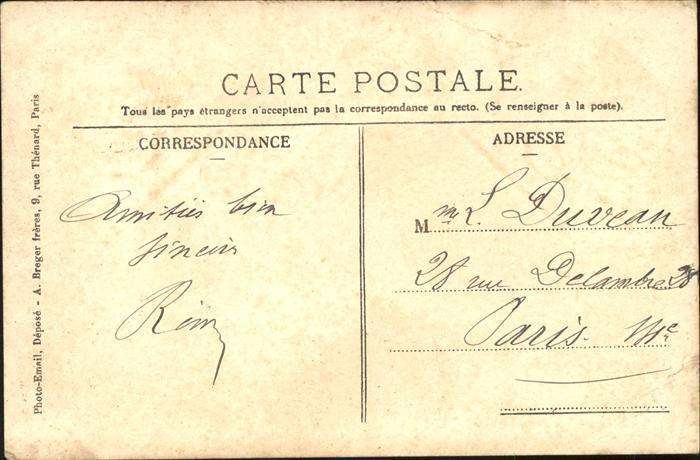 CARTE POSTALE.
Tous les pays étrangers n'acceptent pas la correspondance au recto. (Se renseigner à la poste).
CORRESPONDANCE
Amitiés bien
sincères
Rémy
ADRESSE
M me L. Duveau
28 rue Delambre 28
Paris. Mce
Photo-Email, Déposé - A. Breger frères, 9, rue Thénard, Paris